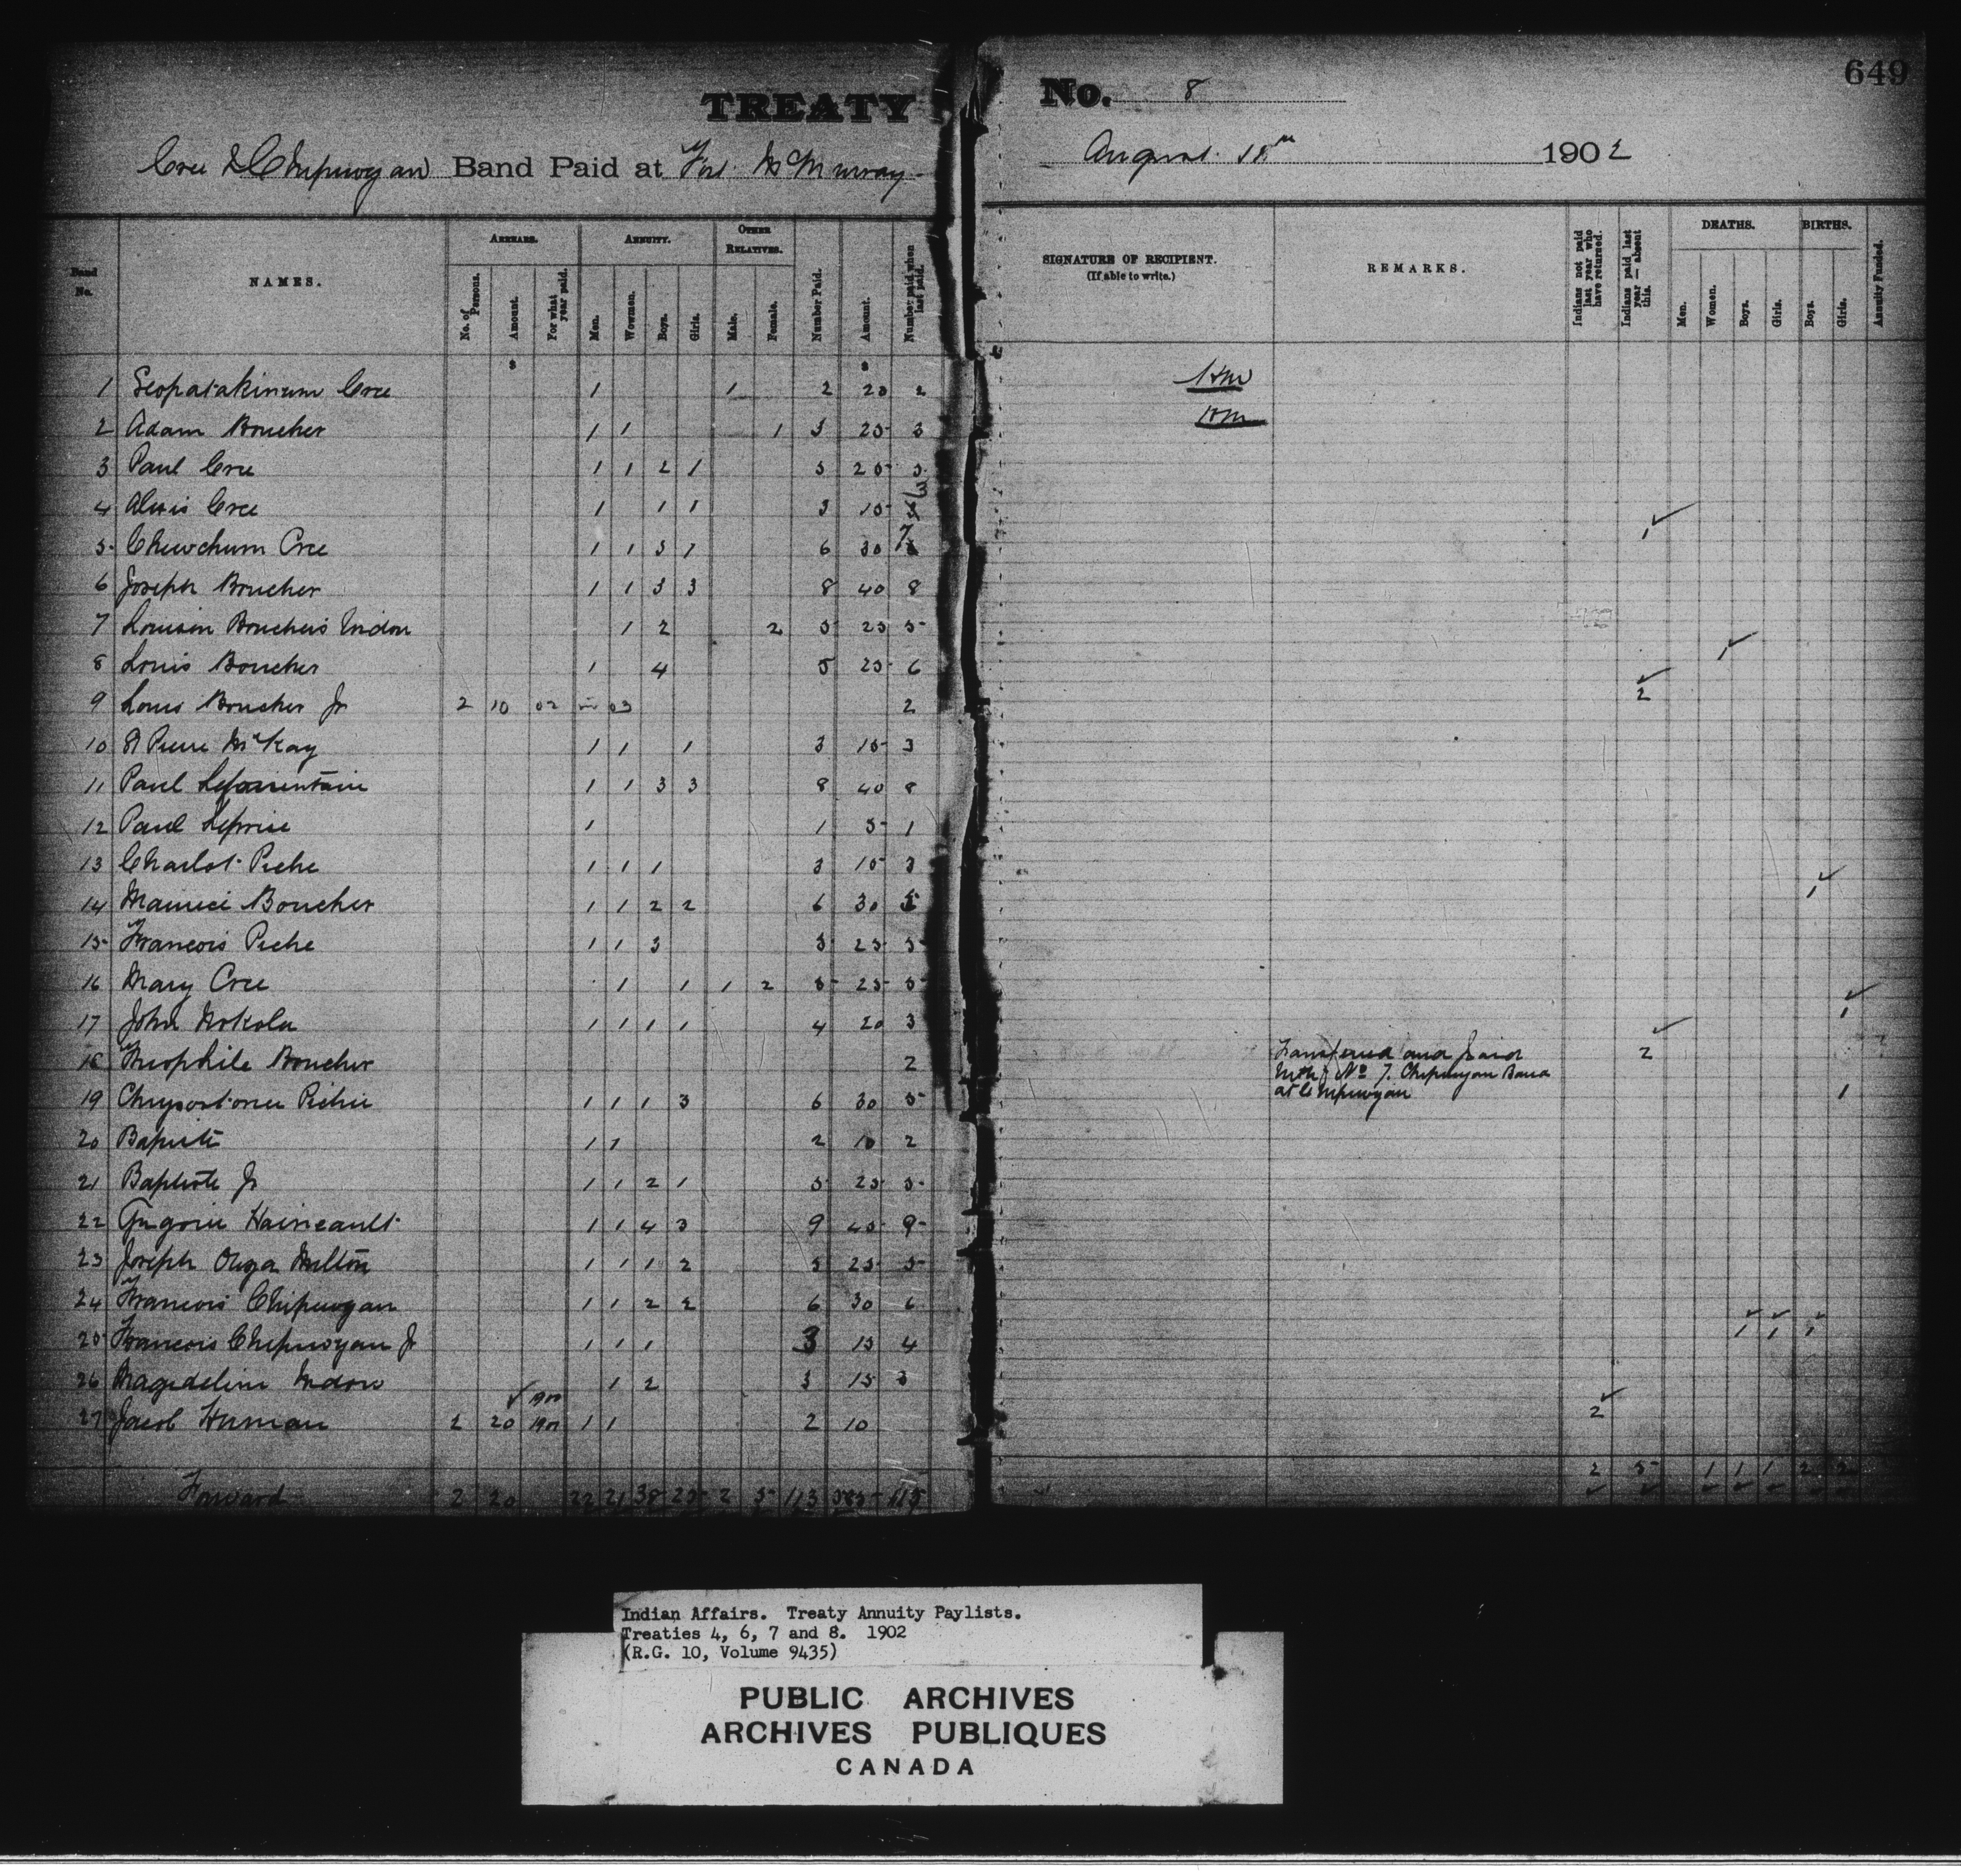 649
TREATY No. 8
Cree & Chipewyan Band Paid at Fort McMurray August 1902
Band No.
NAMES.
ARREARS.
No. of Persons.
Amount.
For what year paid.
ANNUITY.
Men.
Wowmen.
Boys.
Girls.
OTHER RELATIVES.
Male.
Female.
Number Paid.
Amount.
Number paid when last paid.
SIGNATURE OF RECIPIENT.
(If able to write.)
REMARKS.
Indians not paid last year who have returned.
Indians paid last year — absent this.
DEATHS.
Men.
Women.
Boys.
Girls.
BIRTHS.
Boys.
Girls.
Annuity Funded.
$ $
1 Seapatakinum Cree 1 1 2 20 2
2 Adam Boucher 1 1 1 3 25 3
3 Paul Cree 1 1 2 1 5 25 5
4 Alexis Cree 1 1 1 3 15 3 1
5 Chewchum Cree 1 1 3 1 6 30 7
6 Joseph Boucher 1 1 3 3 8 40 8
7 Louison Boucher's Widow 1 2 2 5 25 5
8 Louis Boucher 1 4 5 25 6 1
9 Louis Boucher Jr 2 10 02 03 2 2
10 St Pierre McKay 1 1 1 3 15 3
11 Paul 1 1 3 3 8 40 8
12 Paul Leprise 1 1 5 1
13 Charlot Piche 1 1 1 3 15 3
14 Maurice Boucher 1 1 2 2 6 30 5 1
15 Francois Piche 1 1 3 5 25 5
16 Mary Cree 1 1 1 2 5 25 5
17 John Nokola 1 1 1 1 4 20 3 1
18 Theophile Boucher 2 Transferred and paid 2
with No 7. Chipewyan Band
at Chipewyan
19 Chrysostome Pichie 1 1 1 3 6 30 5 1
20 Baptiste 1 1 2 10 2
21 Baptiste Jr 1 1 2 1 5 25 5
22 Gregorie Haineault 1 1 4 3 9 45 9
23 Joseph 1 1 1 2 5 25 5
24 Francois Chipewyan 1 1 2 2 6 30 6
25 Francois Chipewyan Jr 1 1 1 3 15 4 1 1 1
26 Magdeline Widow 1 2 3 15 3
27 Jacob Herman 2 20 1900 1901 1 1 2 10 2
Forward 2 20 22 21 38 25 2 5 113 585 115 2 5 1 1 1 2 2
Indian Affairs. Treaty Annuity Paylists.
Treaties 4, 6, 7 and 8. 1902
(R.G. 10, Volume 9435)
PUBLIC ARCHIVES
ARCHIVES PUBLIQUES
CANADA